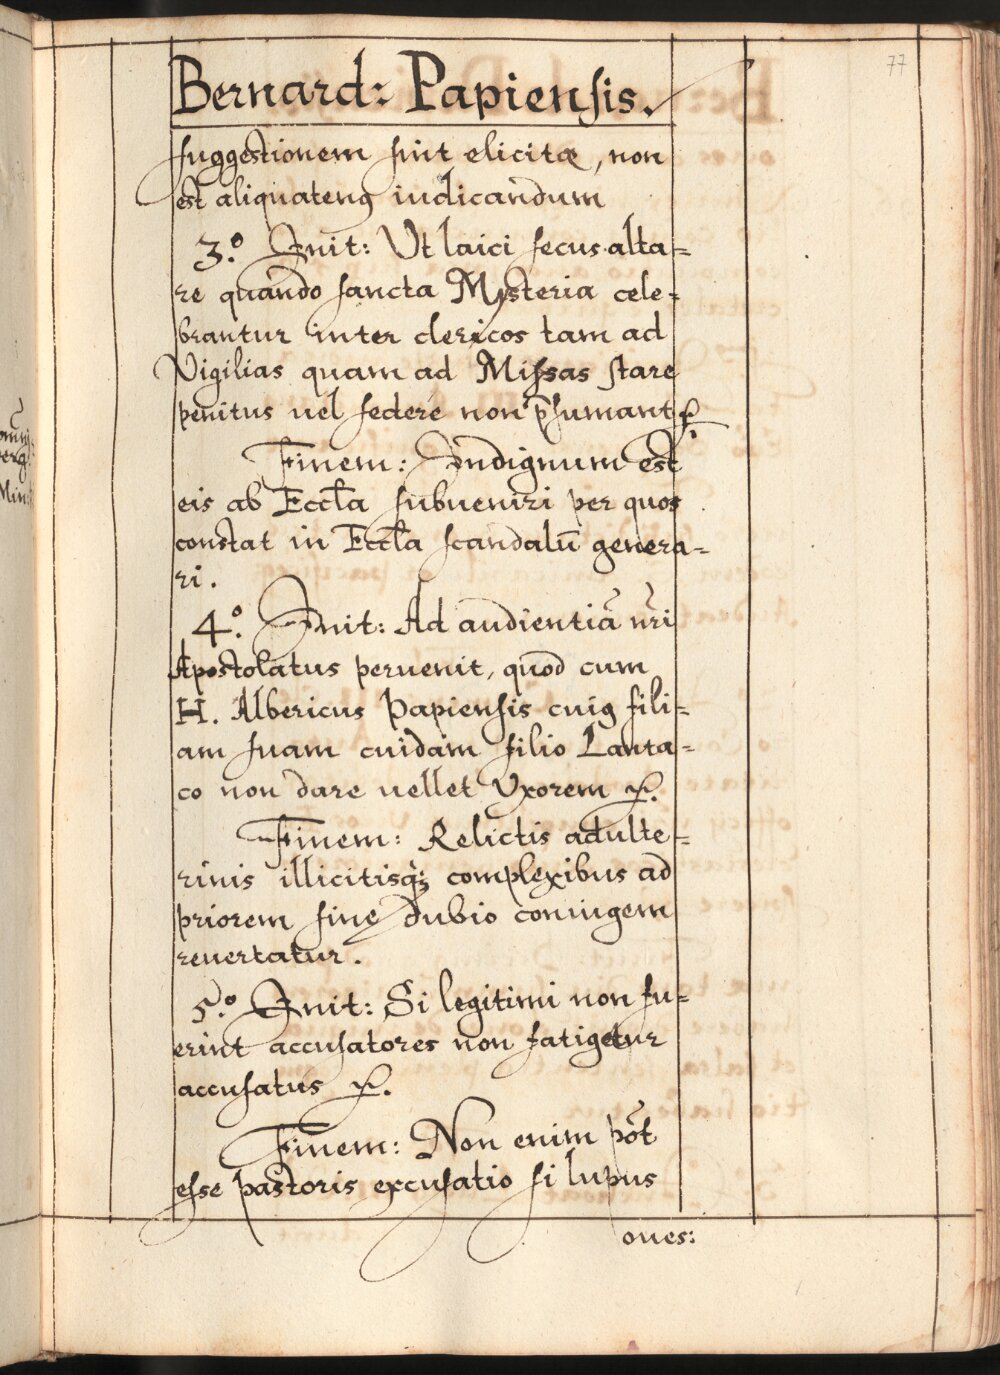 77
Bernard: Papiensis.
suggestionem sint elicitæ, non
est aliquatenꝰ iudicandum
3.º Init: Vt laici secus alta=
re quando sancta Mysteria cele=
brantur inter clericos tam ad
Vigilias quam ad Missas stare
penitus uel sedere non p̄sumant &.
Finem: Indignum est
eis ab Eccl̄a subueniri per quos
constat in Eccl̄a scandalū genera=
ri.
4.º Init: Ad audientiā nr̄i
Apostolatus peruenit, quod cum
H. Albericus Papiensis ciuis fili=
am suam cuidam filio Lanta=
co non dare uellet Vxorem &.
Finem: Relictis adulte=
rinis illicitisq́; complexibus ad
priorem sine dubio coniugem
reuertatur.
5.º Init: Si legitimi non fu=
erint accusatores non fatigetur
accusatus &.
Finem: Non enim pōt
esse pastoris excusatio si lupus
oues: